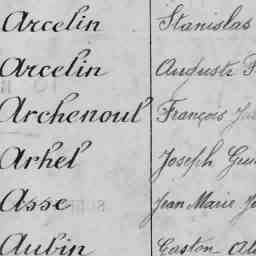 Arcelin Stanislas
Arcelin Auguste F
Archenoul François Ju
Arhel Joseph Gu
Asse Jean Marie Jo
Aubin Gaston Al